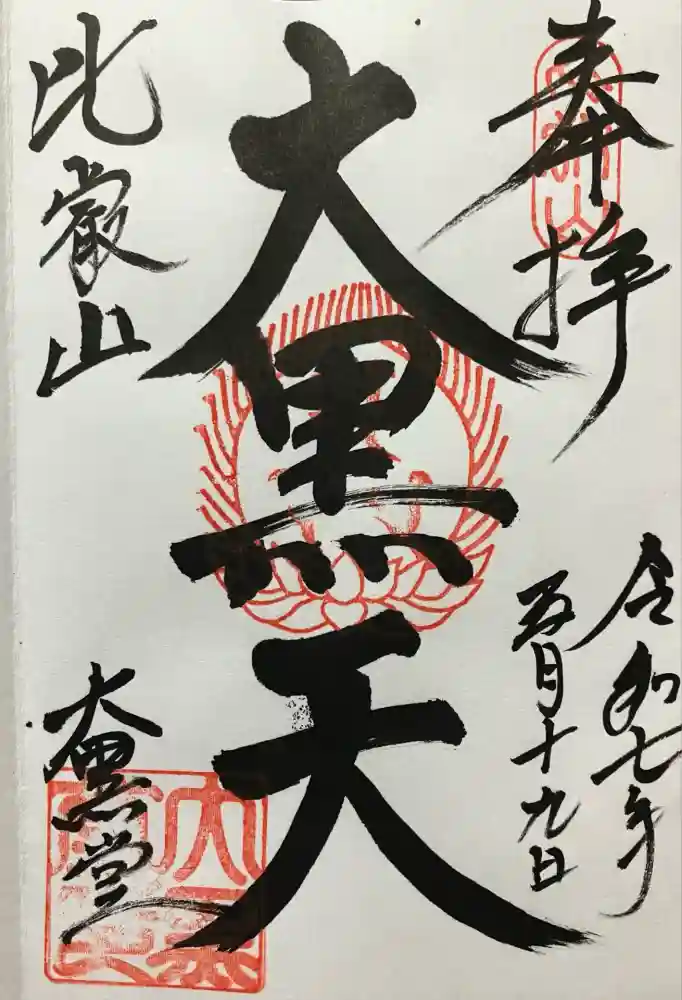 奉拝
令和七年
五月十九日
大黒天
比叡山
大黒堂